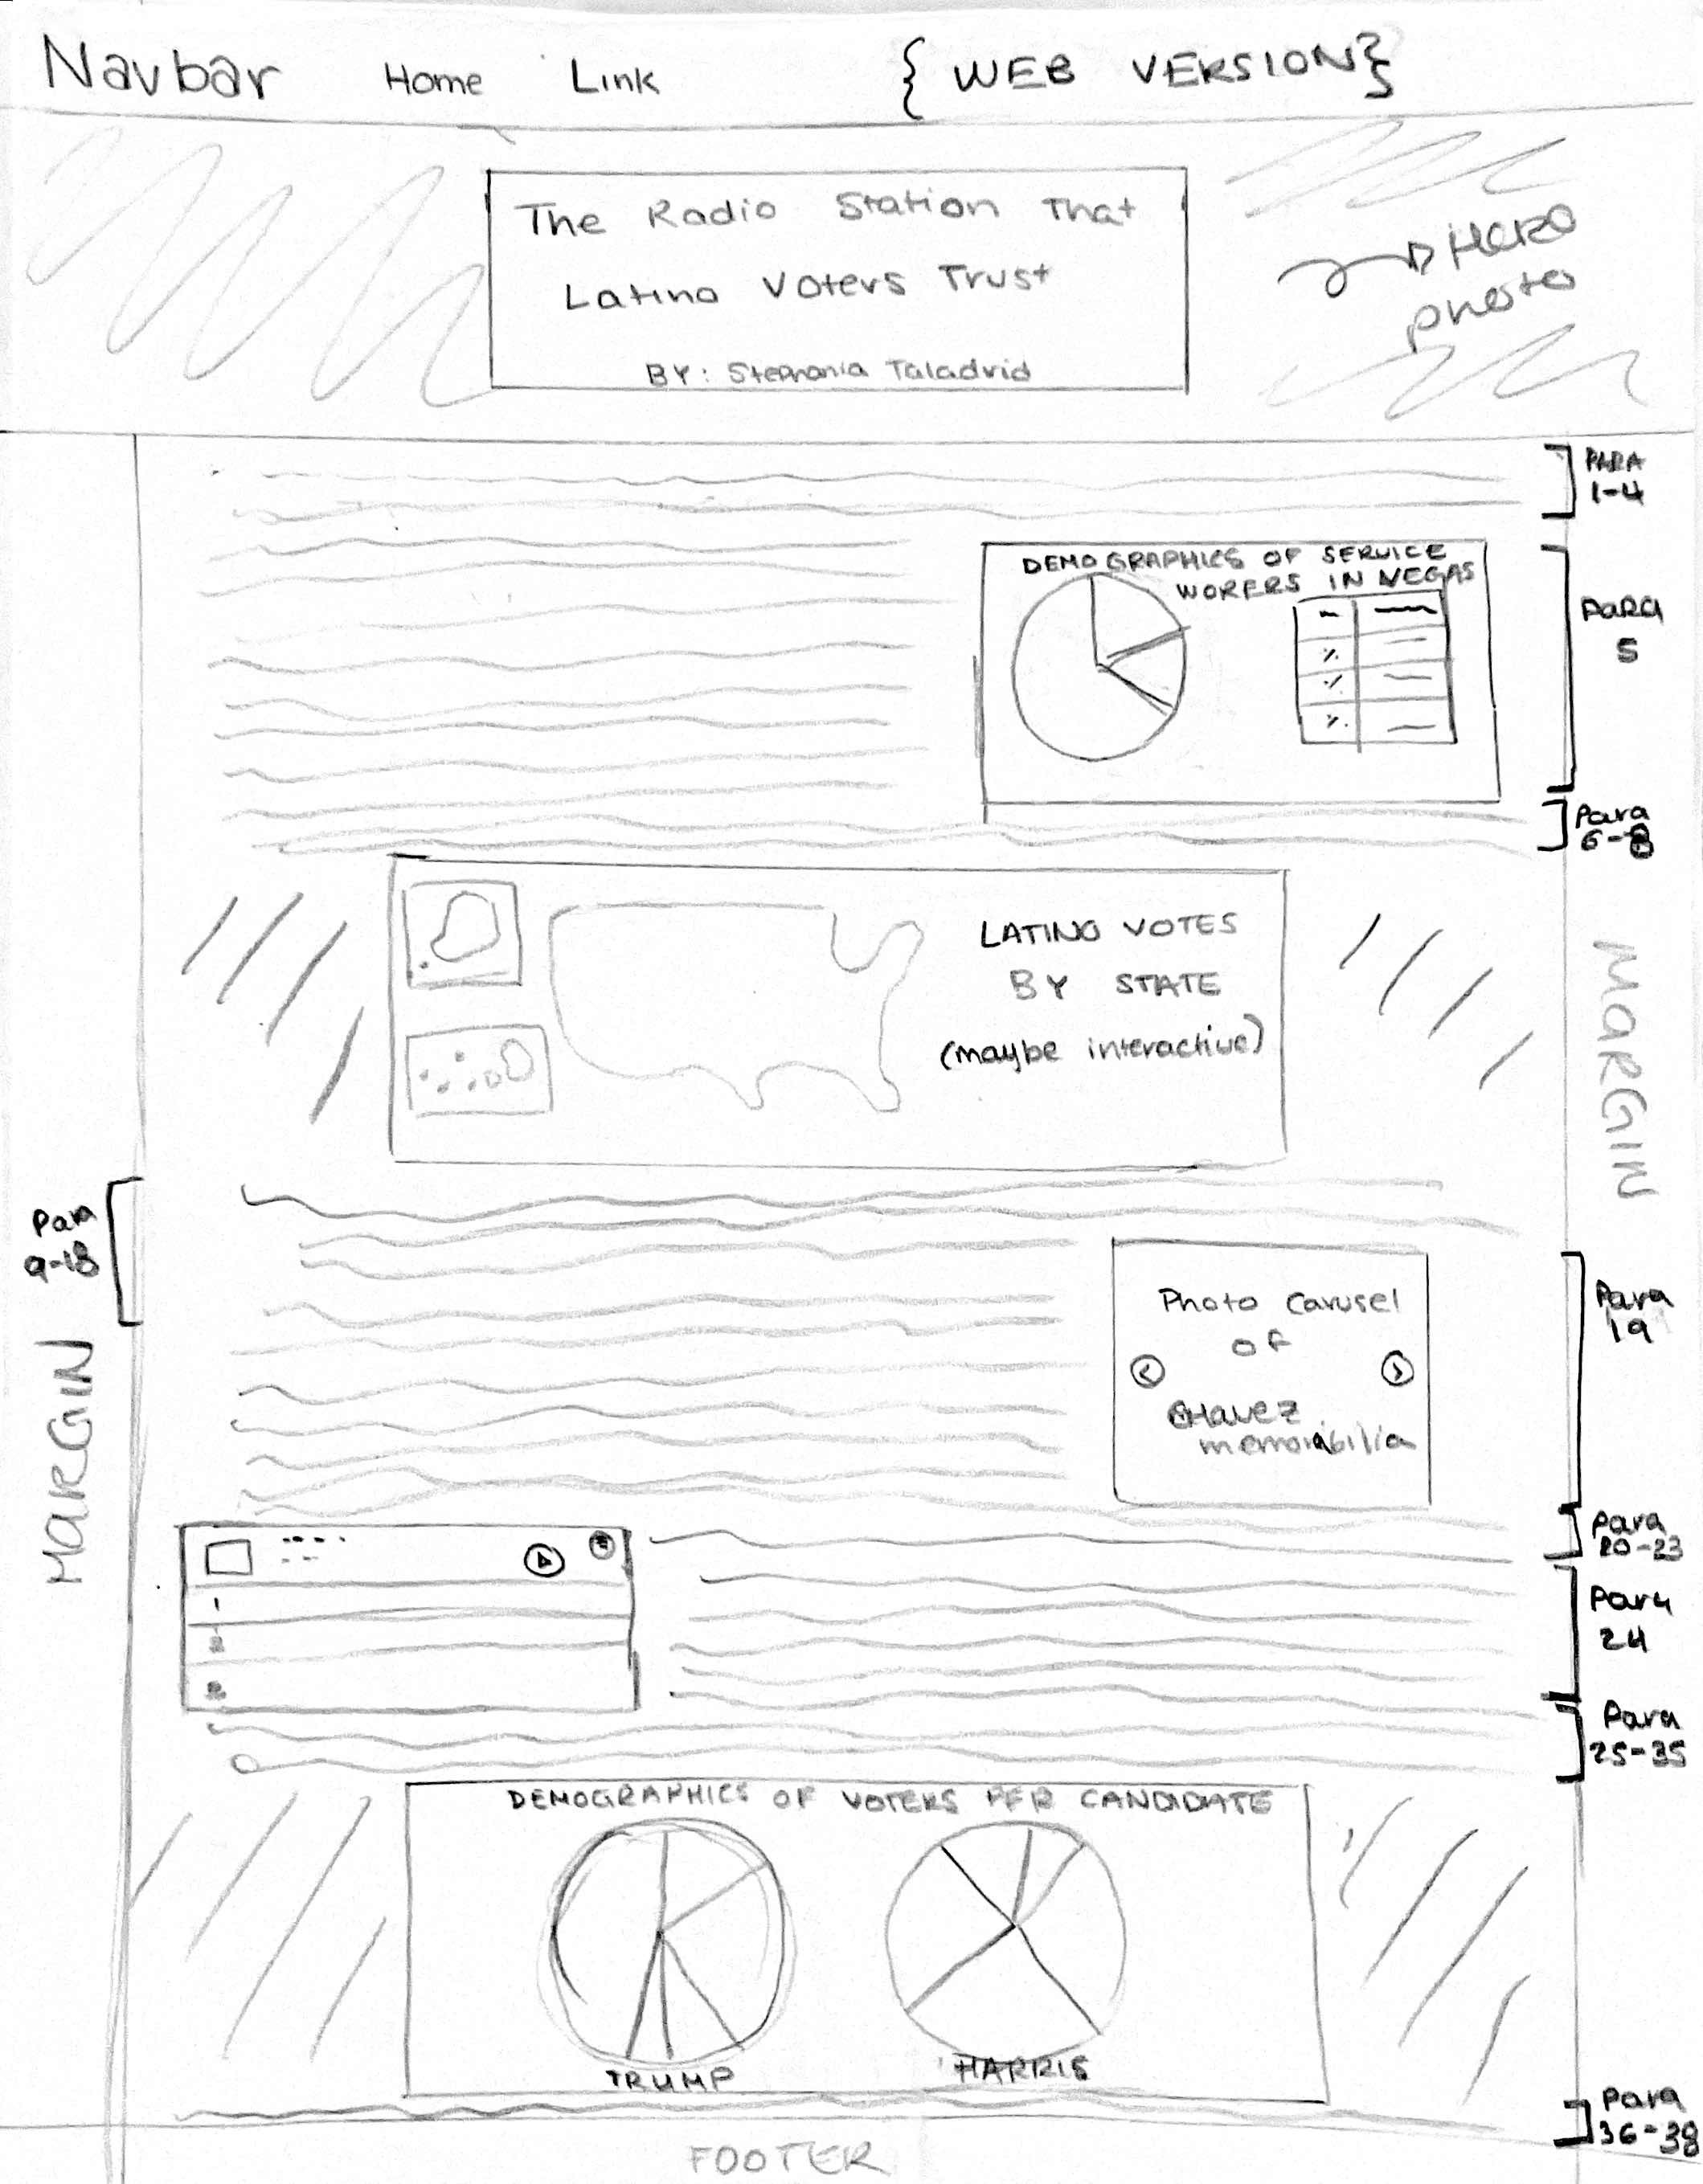 Navbar Home Link { WEB VERSION}
The Radio Station That
Latino Voters Trust
BY: Stephania Taladrid
Hero
photo
PARA
1-4
DEMOGRAPHICS OF SERVICE
WORERS IN VEGAS
PARA
5
%
%
%
Para
6-8
LATINO VOTES
BY STATE
(maybe interactive)
MARGIN
Para
9-18
MARGIN
Photo Carusel
OF
Chavez
memorabilia
Para
19
Para
20-23
1
2
Para
24
Para
25-35
DEMOGRAPHICS OF VOTERS PER CANDIDATE
TRUMP
HARRIS
Para
36-38
FOOTER